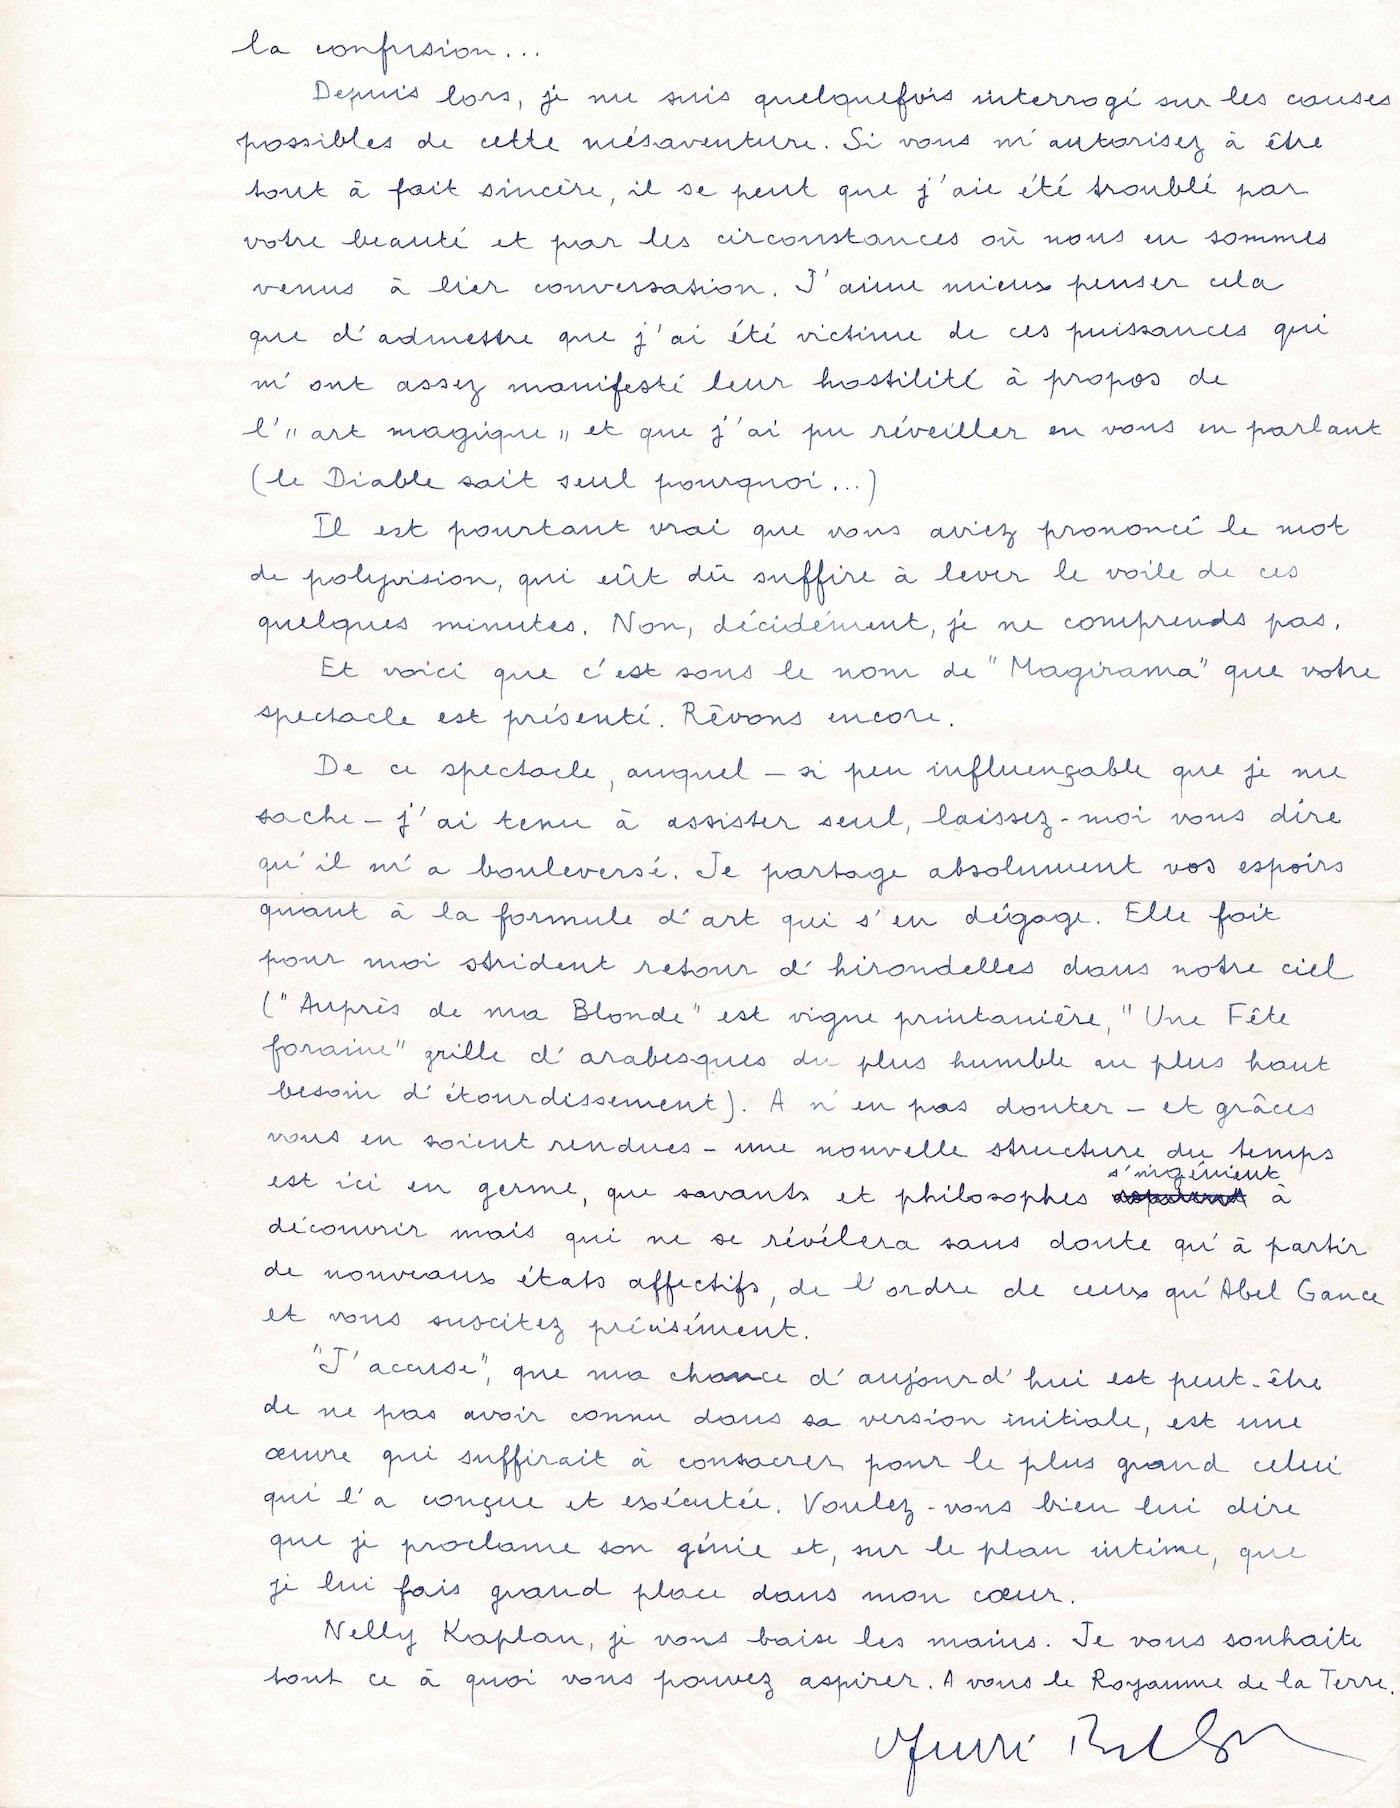 la confusion...
Depuis lors, je me suis quelquefois interrogé sur les causes
possibles de cette mésaventure. Si vous m'autorisez à être
tout à fait sincère, il se peut que j'aie été troublé par
votre beauté et par les circonstances où nous en sommes
venus à lier conversation. J'aime mieux penser cela
que d'admettre que j'ai été victime de ces puissances qui
m'ont assez manifesté leur hostilité à propos de
l'"art magique" et que j'ai pu réveiller en vous en parlant
(le Diable sait seul pourquoi...)
Il est pourtant vrai que vous aviez prononcé le mot
de polyvision, qui eût dû suffire à lever le voile de ces
quelques minutes. Non, décidément, je ne comprends pas.
Et voici que c'est sous le nom de "Magirama" que votre
spectacle est présenté. Rêvons encore.
De ce spectacle, auquel – si peu influençable que je me
sache – j'ai tenu à assister seul, laissez-moi vous dire
qu'il m'a bouleversé. Je partage absolument vos espoirs
quant à la formule d'art qui s'en dégage. Elle fait
pour moi strident retour d'hirondelles dans notre ciel
("Auprès de ma Blonde" est vigne printanière, "Une Fête
foraine" grille d'arabesques du plus humble au plus haut
besoin d'étourdissement). A n'en pas douter – et grâces
vous en soient rendues – une nouvelle structure du temps
est ici en germe, que savants et philosophes s'ingénient à
découvrir mais qui ne se révélera sans doute qu'à partir
de nouveaux états affectifs, de l'ordre de ceux qu'Abel Gance
et vous suscitez précisément.
"J'accuse", que ma chance d'aujourd'hui est peut-être
de ne pas avoir connu dans sa version initiale, est une
œuvre qui suffirait à consacrer pour le plus grand celui
qui l'a conçue et exécutée. Voulez-vous bien lui dire
que je proclame son génie et, sur le plan intime, que
je lui fais grand place dans mon cœur.
Nelly Kaplan, je vous baise les mains. Je vous souhaite
tout ce à quoi vous pouvez aspirer. A vous le Royaume de la Terre.